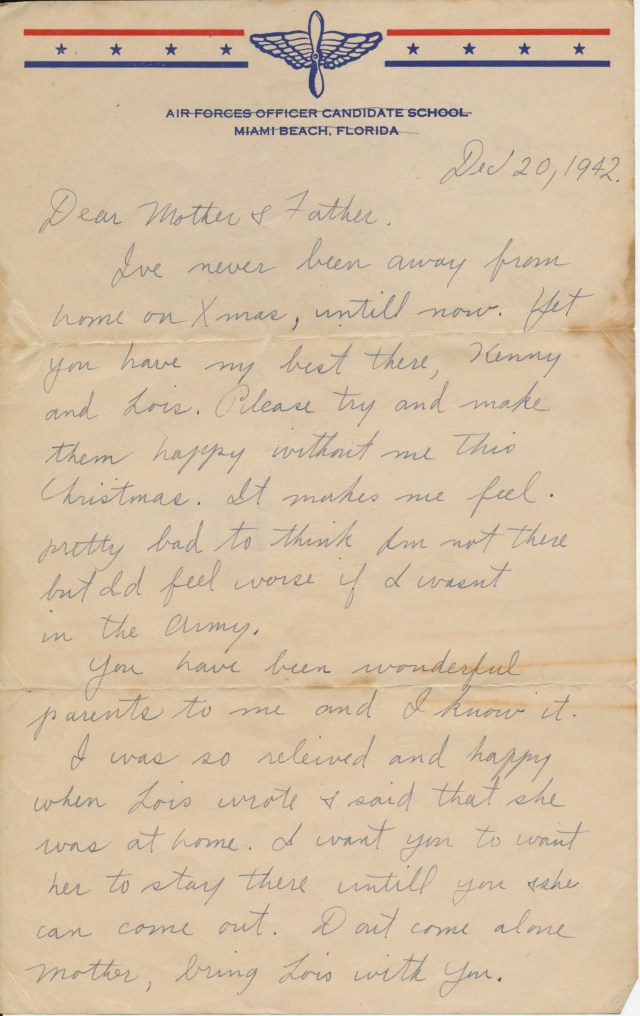 AIR FORCES OFFICER CANDIDATE SCHOOL
MIAMI BEACH, FLORIDA
Dec 20, 1942.
Dear Mother & Father.
Ive never been away from
home on Xmas, untill now. Yet
you have my best there, Kenny
and Lois. Please try and make
them happy without me this
Christmas. It makes me feel.
pretty bad to think Im not there
but Id feel worse if I wasnt
in the Army.
You have been wonderful
parents to me and I know it.
I was so releived and happy
when Lois wrote & said that she
was at home. I want you to want
her to stay there untill you & she
can come out. Dont come alone
Mother, bring Lois with you.